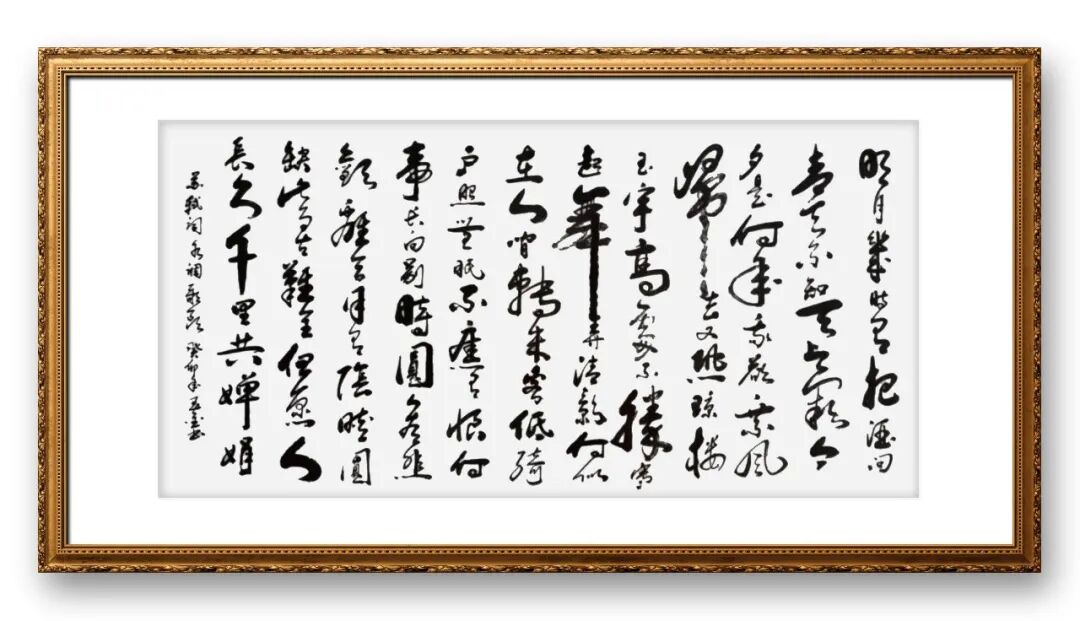 明月幾時有把酒問
青天不知天上宮闕今
夕是何年我欲乘風
歸去又恐瓊樓
玉宇高處不勝寒
起舞弄清影何似
在人間轉朱閣低綺
戶照無眠不應有恨何
事長向別時圓人有悲
歡離合月有陰晴圓
缺此事古難全但願人
長久千里共嬋娟
蘇軾詞水調歌頭癸卯年